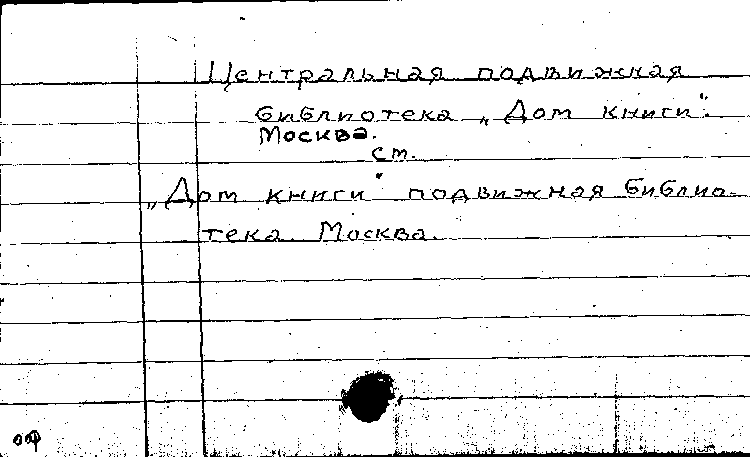 Центральная подвижная
библиотека „Дом книги".
Москва.
ст.
„Дом книги" подвижная библио-
тека. Москва.